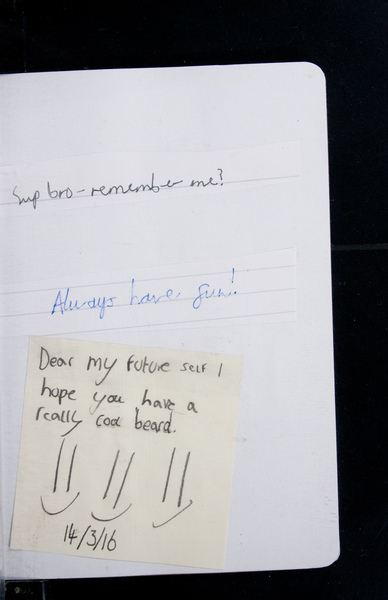 Sup bro - remember me?
Always have fun!
Dear my future self I
hope you have a
really cool beard.
14/3/16